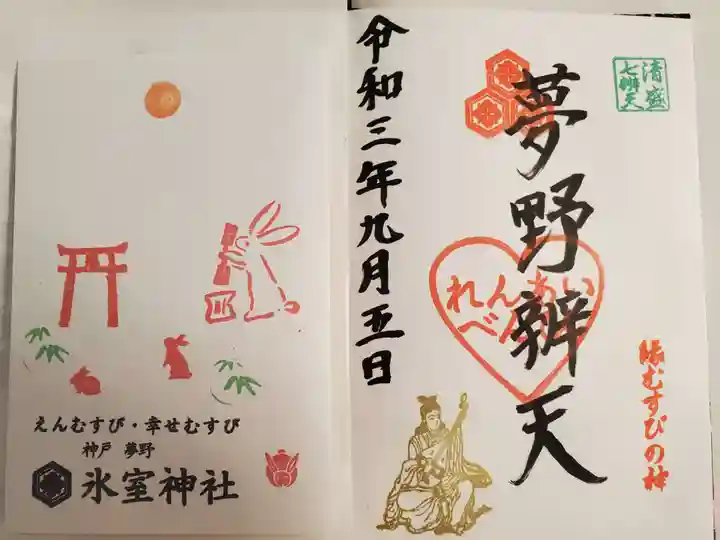 清盛
七辨天
夢野辨天
れんあい
べんてん
縁むすびの神
令和三年九月五日
えんむすび・幸せむすび
神戸 夢野
氷室神社